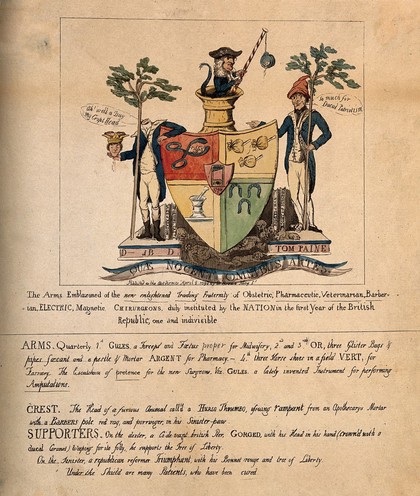 Ah! well a Day
My Capt Head
so much for
Ducal Patriotism
D—JB D
TOM PAINE
QUÆ NOCENT OMNIBUS ARTES
Publish'd as the Act directs April
The Arms Emblazoned of the new enlightened Trading Fraternity of Obstetric, Pharmaceutic, Veterinarian, Barber-
ian, ELECTRIC, Magnetic CHIRURGEONS, duly instituted by the NATION in the first Year of the British
Republic, one and indivisible
ARMS. Quarterly 1st GULES, a Forceps and Fœtus proper for Midwifery, 2d and 3d OR, three Glister Bags &
pipes, and a pestle & Mortar ARGENT for Pharmacy — 4th three Horse shoes in a field VERT, for
Farriery. The Escutcheon of pretence for the new Surgeons, viz. GULES. a lately invented Instrument for performing
Amputations.
CREST. The Head of a furious Animal call'd a HURLO THRUMBO, issuing rampant from an Apothecarys Mortar
with a BARBERS pole, red rag, and porringer, in his Sinister-paw
SUPPORTERS. On the dexter, a british Peer, GORGED, with his Head in his hand (crown'd with a
ducal Coronet) Weeping for its folly, he supports the Tree of Liberty.
On the Sinister, a republican reformer Triumphant, with his Bonnet rouge and tree of Liberty
Under the Shield are many Patients, who have been cured